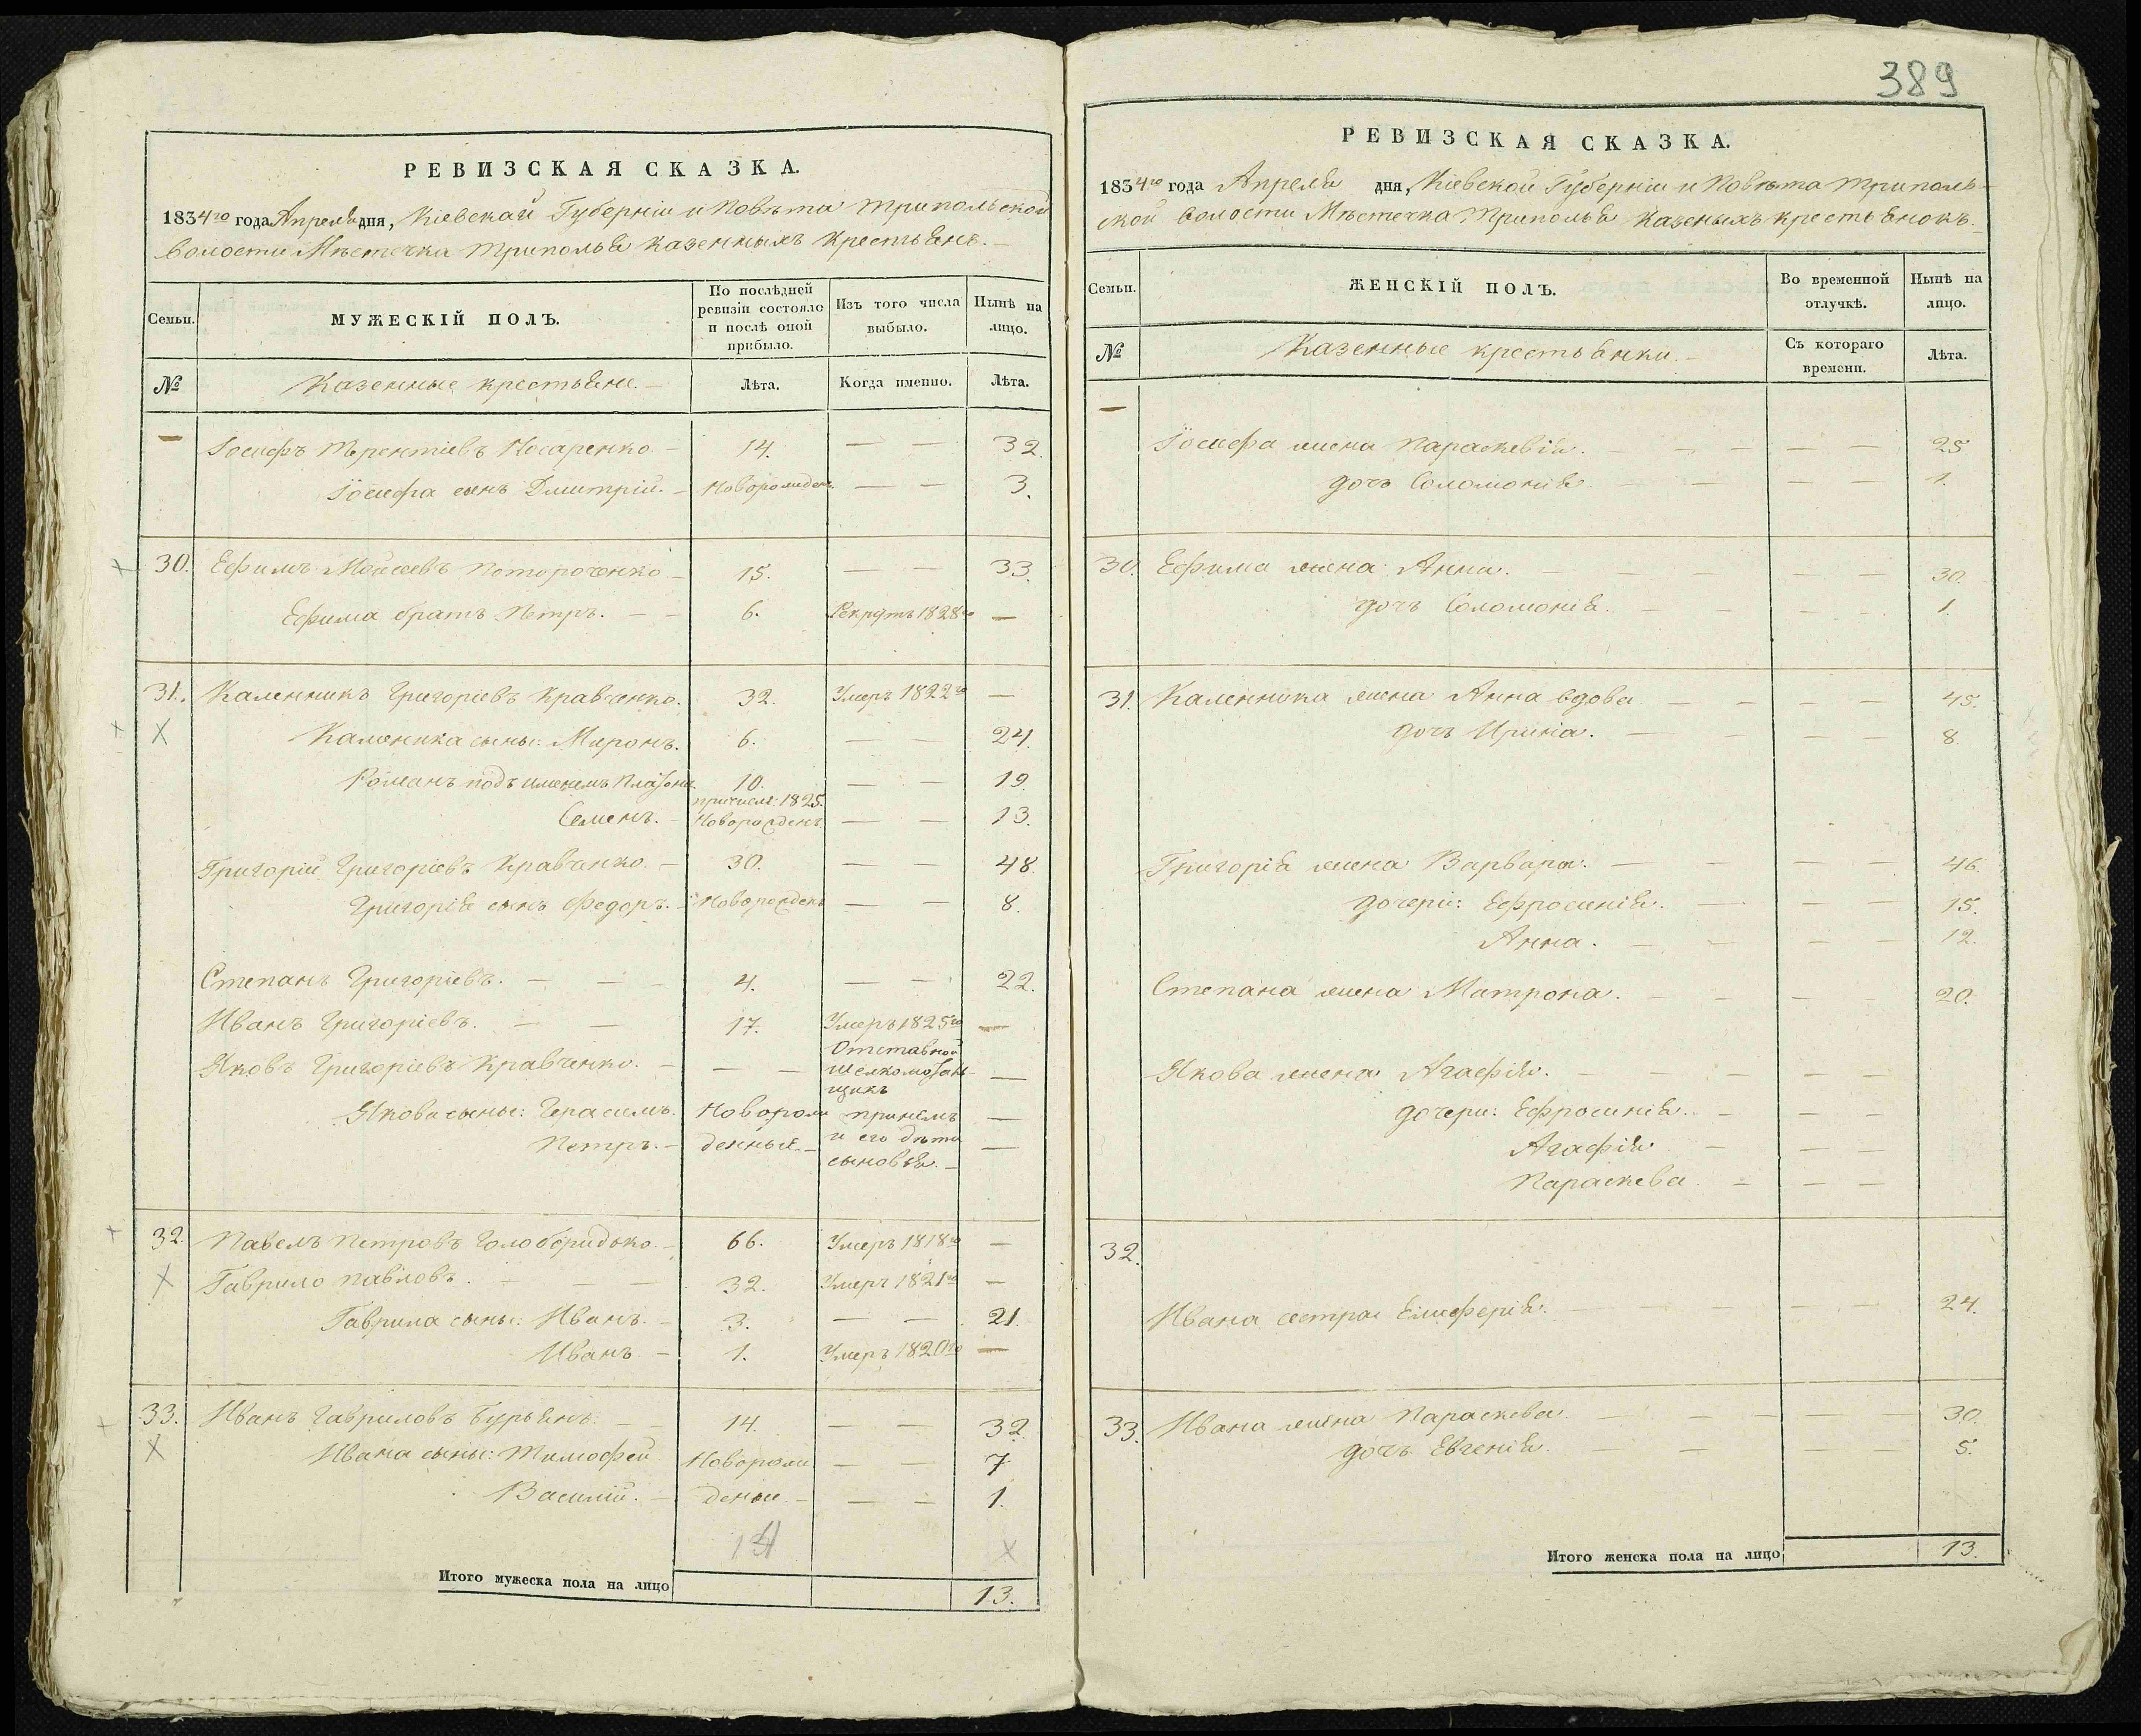 389
РЕВИЗСКАЯ СКАЗКА.
1834го года Апреля дня, Кіевской Губерніи и Повѣта Трипольской
Волости Мѣстечка Триполья казенныхъ крестьянъ.
Семьи.
МУЖЕСКІЙ ПОЛЪ.
По послѣдней ревизіи состояло и послѣ оной прибыло.
Изъ того числа выбыло.
Нынѣ на лицо.
№
Казенные крестьяне.
Лѣта.
Когда именно.
Лѣта.
— Іосифъ Терентіевъ Косаренко — 14. — — 32.
Іосифа сынъ Дмитрій. — Новорожденъ — — 3.
30. Ефимъ Моисеевъ Потороченко — 15. — — 33.
Ефима братъ Петръ. — — 6. Рекрутъ 1828го —
31. Каленникъ Григоріевъ Кравченко. 32. Умеръ 1822го —
X Каленика сыны: Миронъ. 6. — — 24.
Романъ подъ именемъ Платона. 10. — — 19.
причисл: 1825.
Семенъ. — Новорожденъ — — 13.
Григорій Григоріевъ Кравченко. — 30. — — 48.
Григорія сынъ Федоръ. — Новорожденъ — — 8.
Степанъ Григоріевъ. — — — 4. — — 22.
Иванъ Григоріевъ. — — 17. Умеръ 1825го —
Яковъ Григоріевъ Кравченко. — — — Отставной —
Якова сыны: Герасимъ. Новорож —
и его дѣти
Петръ. — денные. — —
сыновья. —
32. Павелъ Петровъ Голобородько. — 66. Умеръ 1818го —
X Гаврило Павловъ. — — — 32. Умеръ 1821го —
Гаврила сыны: Иванъ. — 3. — — 21.
Иванъ — 1. Умеръ 1820го —
33. Иванъ Гавриловъ Бурьянъ. — — 14. — — 32.
X Ивана сыны: Тимофей Новорож — — 7
Василій. — денные — — — 1.
X
Итого мужеска пола на лицо 13.
РЕВИЗСКАЯ СКАЗКА.
1834го года Апреля дня, Кіевской Губерніи и Повѣта Триполь-
ской Волости Мѣстечка Триполья Казеныхъ крестьянокъ.
Семьи.
ЖЕНСКІЙ ПОЛЪ.
Во временной отлучкѣ.
Нынѣ на лицо.
№
Казенные крестьянки. —
Съ котораго времени.
Лѣта.
—
Іосифа жена Параскевія. — — — — — 25.
дочь Соломонія — — — — 1.
30. Ефима жена Анна. — — — — — 30.
дочь Соломонія. — — — — 1.
31. Каленника жена Анна вдова — — — — 45.
дочь Ирина. — — — — 8.
Григорія жена Варвара. — — — — 46.
дочери: Ефросинія. — — — — 15.
Анна. — — — — 12.
Степана жена Матрона. — — — — 20.
Якова жена Агафія. — — — — —
дочери: Ефросинія. — — —
Агафія — — —
Параскева — — —
32.
Ивана сестра Елисферія. — — — — 24.
33. Ивана жена Параскева — — — — — 30.
дочь Евгенія. — — 5.
Итого женска пола на лицо 13.